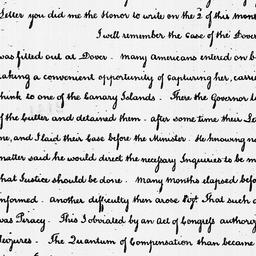 Letter you did me the Honor to write on the 2 of this month
I well remember the Case of the Dover
was fitted out at Dover. many Americans entered on b
taking a convenient opportunity of capturing her, carri
think to one of the Canary Islands. There the Governor to
of the Cutter and detained them. after some time their Le
me, and I laid their Case before the Minister. He knowing no
matter said he would direct the necessary Inquiries to be m
that Justice should be done. many months elapsed befo
informed. another difficulty then arose That such a
was Piracy. This I obviated by an Act of Congress authoriz
Seizures. The Quantum of Compensation than became